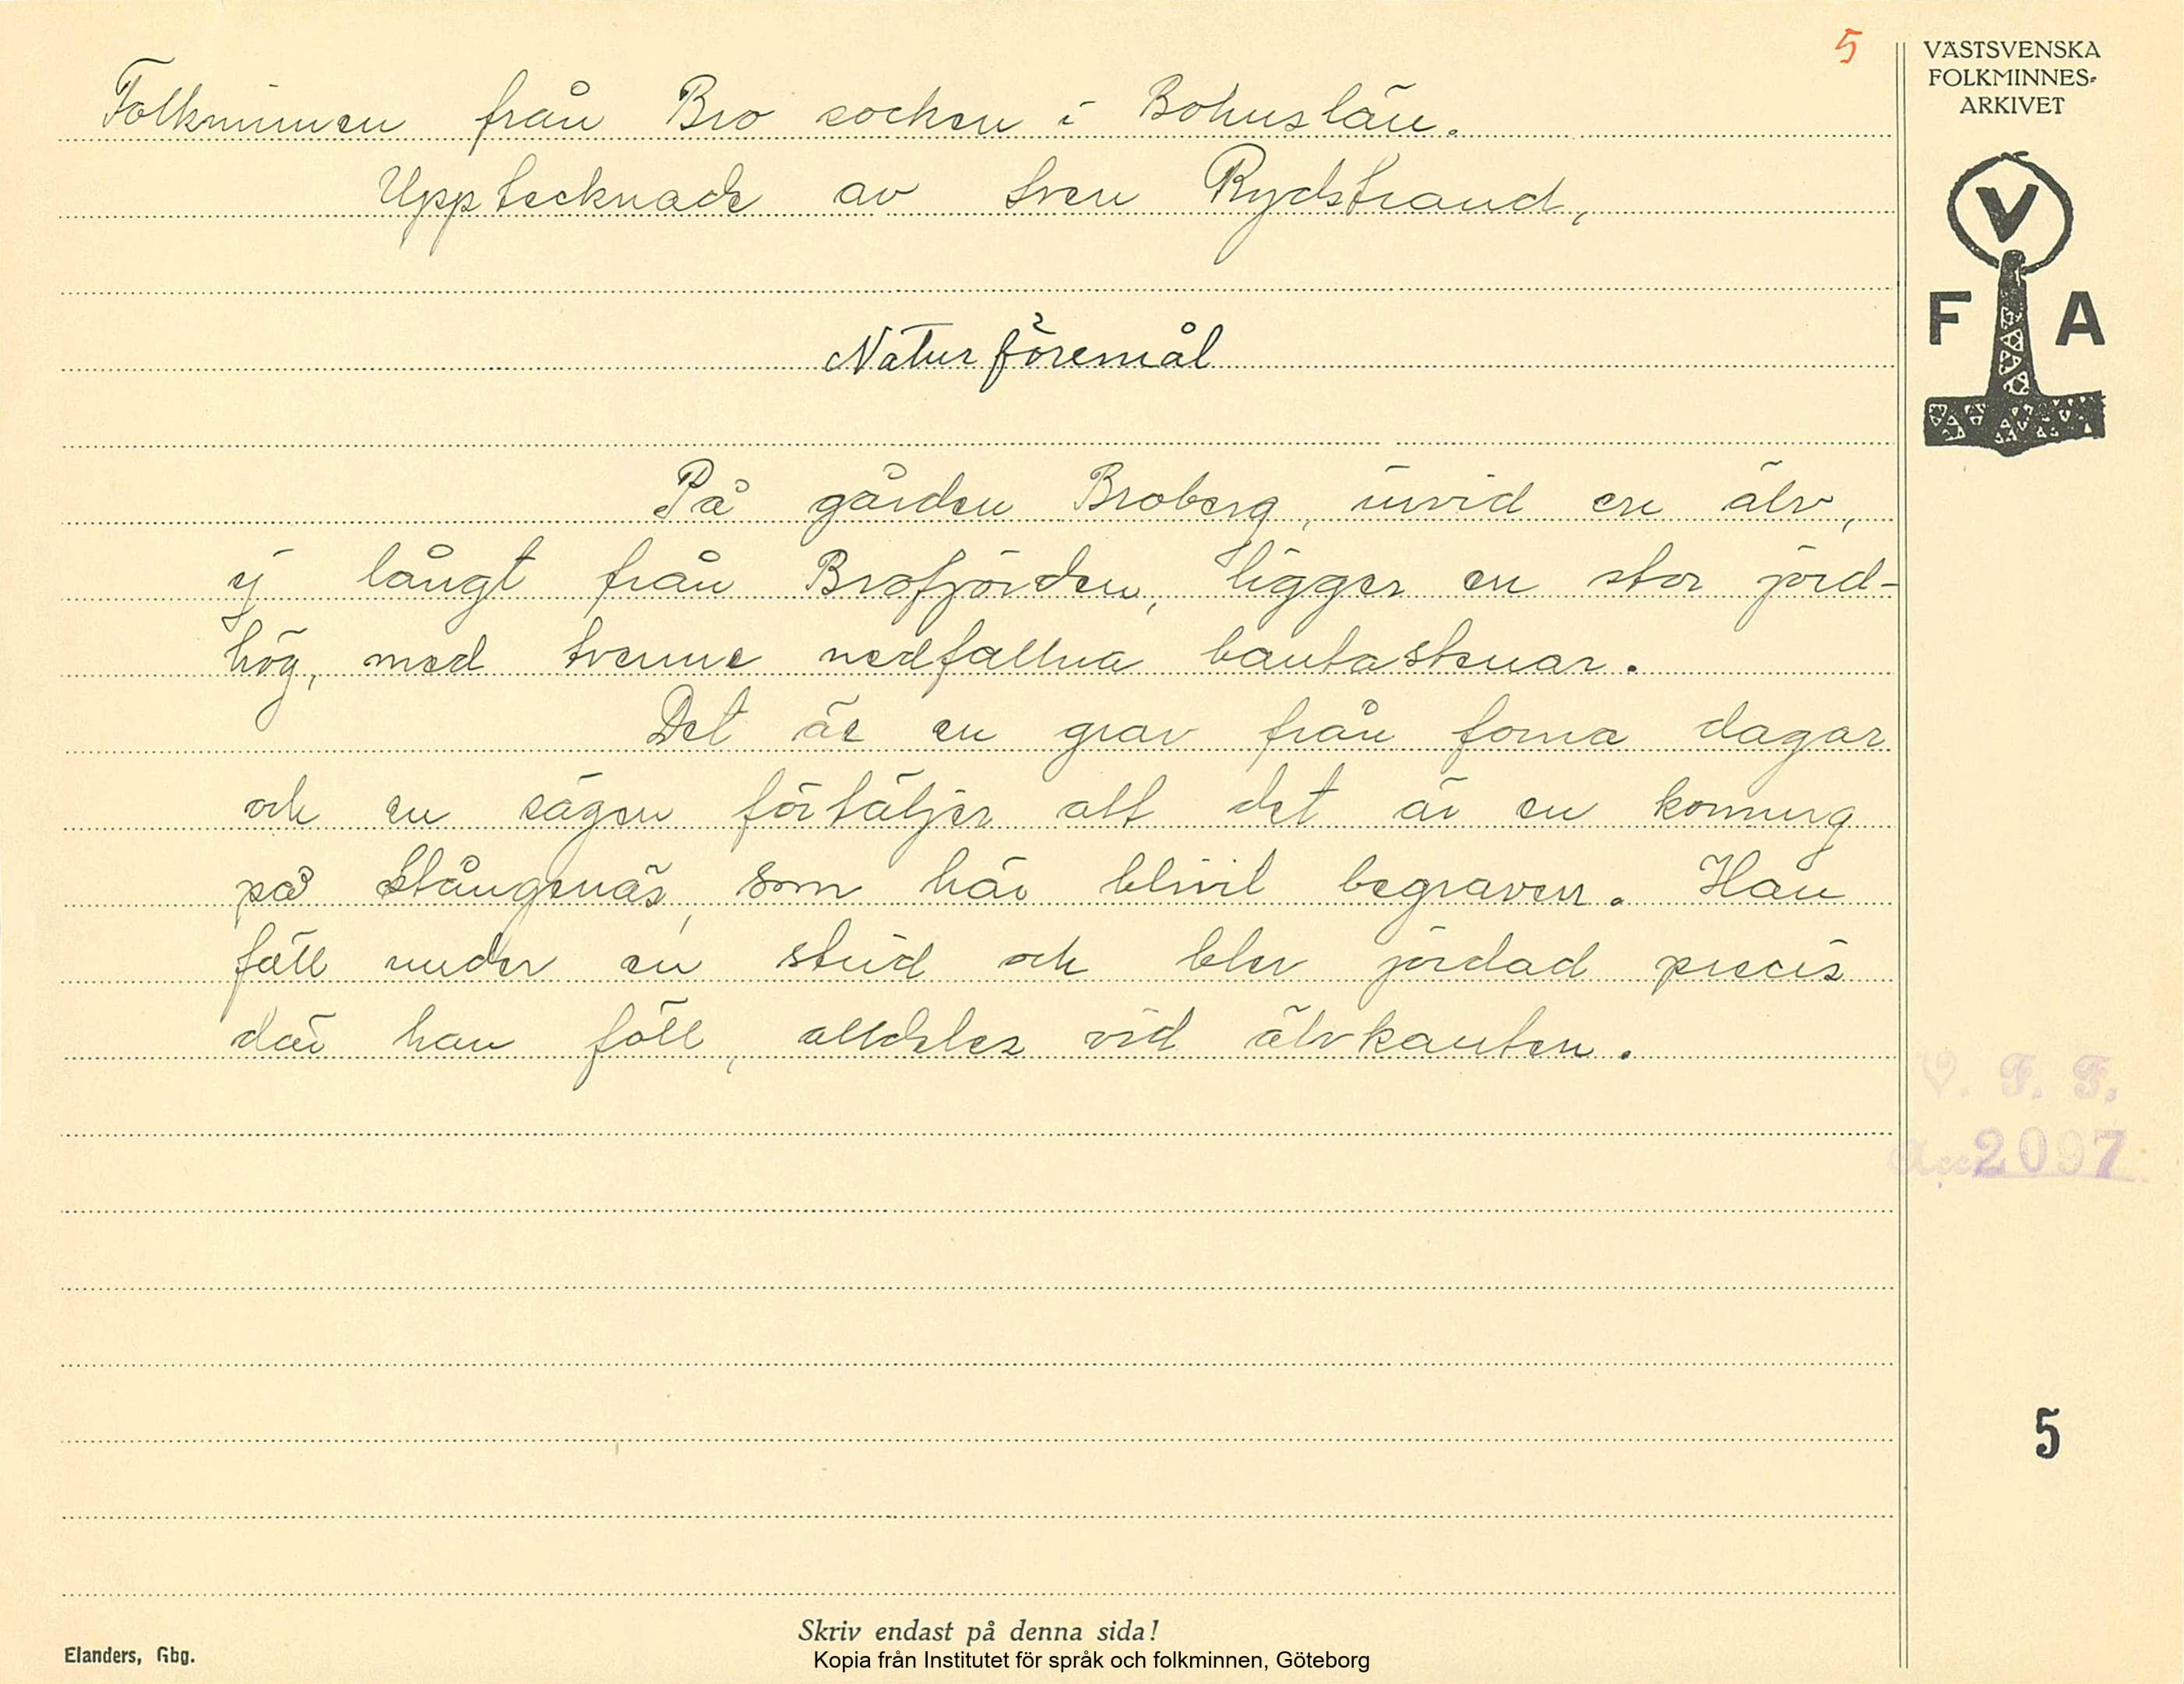 5
VÄSTSVENSKA
FOLKMINNES-
ARKIVET
V
F A
Folkminnen från Bro socken i Bohuslän.
Upptecknade av Sven Rydstrand,
Naturföremål
På gården Broberg, invid en älv,
ej långt från Brofjorden, ligger en stor jord-
hög, med tvenne nedfallna bautastenar.
Det är en grav från forna dagar
och en sägen förtäljer att det är en konung
på Stångenäs, som här blivit begraven. Han
föll under en strid och blev jordad precis
där han föll, alldeles vid älvkanten.
V. F. F.
Acc 2097
5
Skriv endast på denna sida!
Elanders, Gbg.
Kopia från Institutet för språk och folkminnen, Göteborg